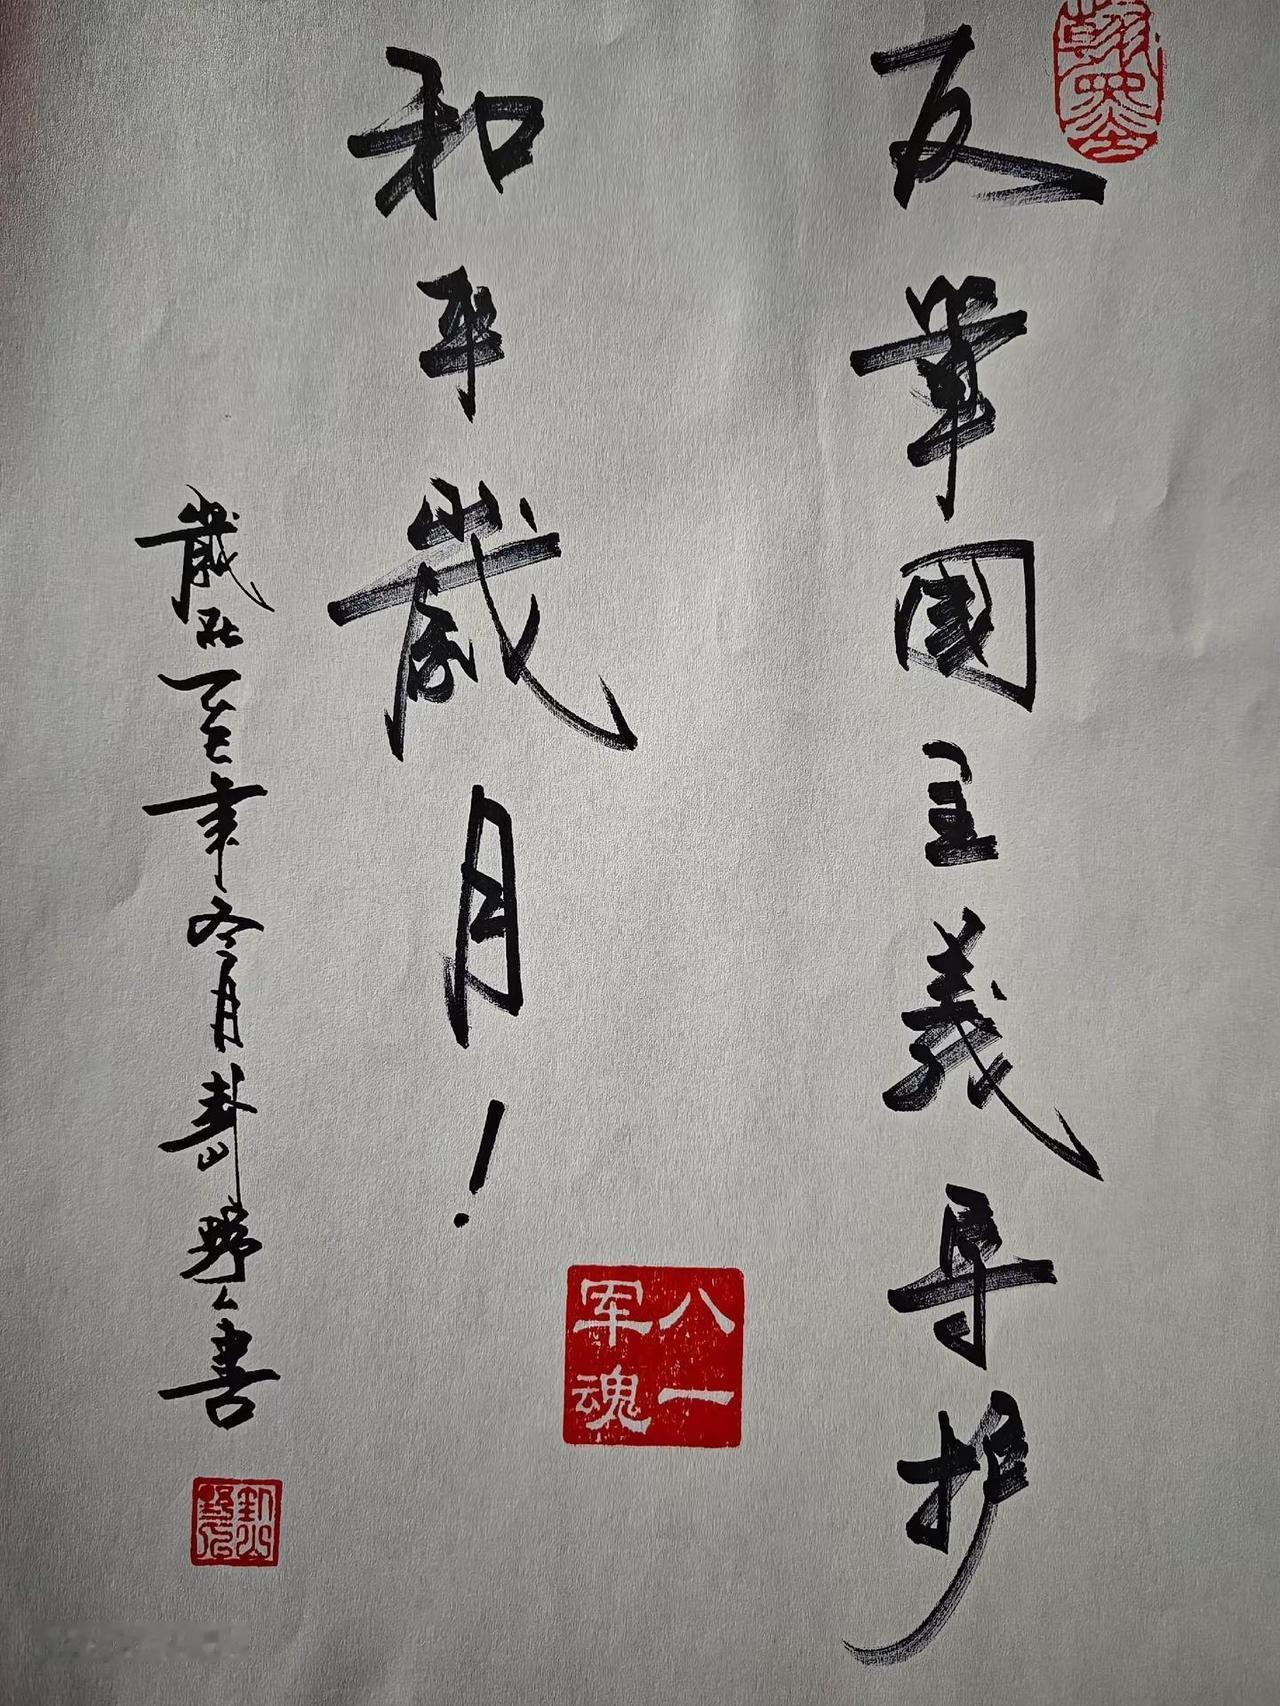 反軍國主義护
和平歲月！
歲在乙巳年冬月書
八一
军魂